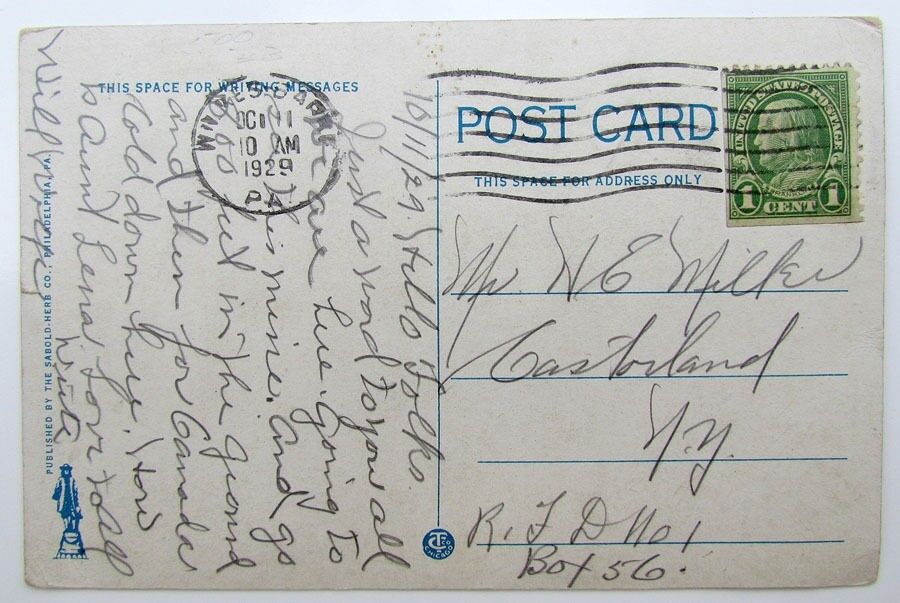 THIS SPACE FOR WRITING MESSAGES
POST CARD
THIS SPACE FOR ADDRESS ONLY
UNITED STATES POSTAGE
1 CENT 1
WILKES-BARRE
OCT 11
10 AM
1929
PA.
Mr. H E Milker
Castorland
N.Y.
R. F D No 1
Box 56.
10/11/29. Hello Folks.
Just a word to you all
are here. Going to
this mine. And go
feet in the ground
and then for Canada
Cold down here. How
is Aunt Lena. Love to all
Write
Will
PUBLISHED BY THE SABOLD-HERB CO., PHILADELPHIA, PA.
CHICAGO